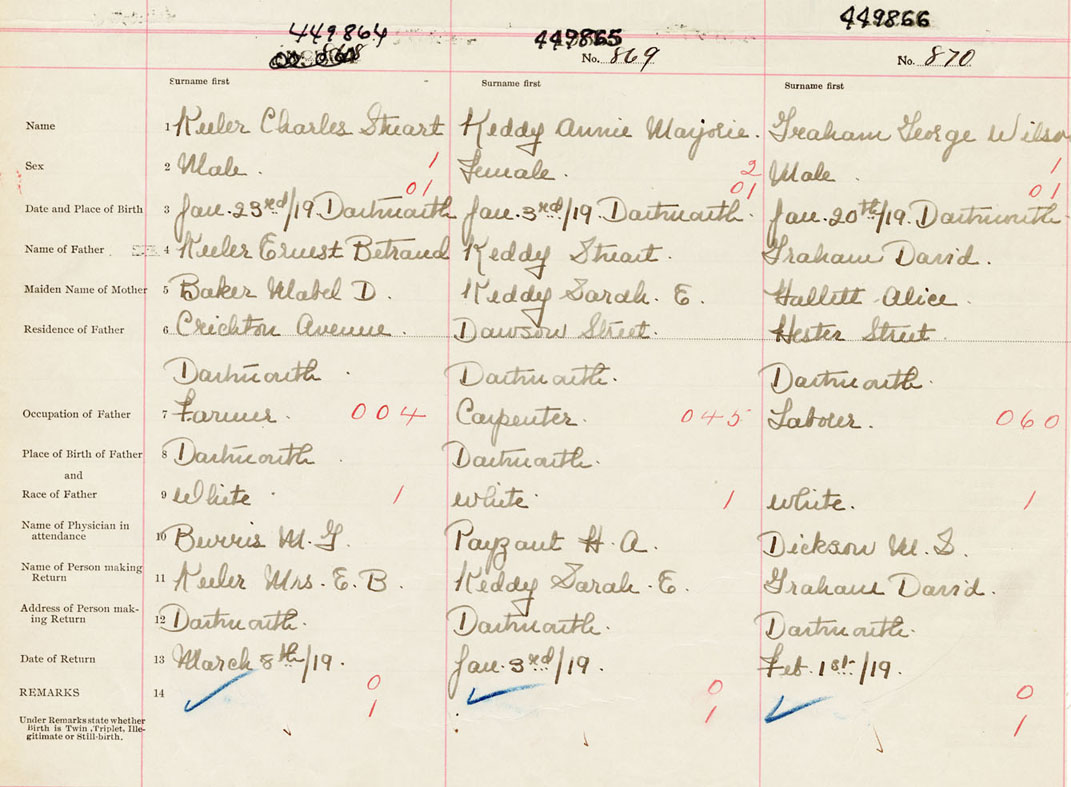 449864 449865 449866
868 No. 869 No. 870
Surname first Surname first Surname first
Name 1 Keeler Charles Stuart Keddy Annie Marjorie. Graham George Wilson
Sex 2 Male. 1 Female. 2 Male 1
01 01 01
Date and Place of Birth 3 Jan. 23rd/19 Dartmouth Jan. 3rd/19. Dartmouth. Jan. 20th/19. Dartmouth.
Name of Father 4 Keeler Ernest Betraud Keddy Stuart. Graham David.
Maiden Name of Mother 5 Baker Mabel D. Keddy Sarah. E. Hallett Alice.
Residence of Father 6 Crichton Avenue. Dawson Street. Hester Street.
Dartmouth. Dartmouth. Dartmouth.
Occupation of Father 7 Farmer. 004 Carpenter. 045 Labourer. 060
Place of Birth of Father 8 Dartmouth. Dartmouth.
and
Race of Father 9 White. 1 White. 1 White. 1
Name of Physician in
attendance 10 Burris M. G. Payzant H. A. Dickson M. S.
Name of Person making
Return 11 Keeler Mrs. E. B. Keddy Sarah. E. Graham David.
Address of Person mak-
ing Return 12 Dartmouth. Dartmouth. Dartmouth.
Date of Return 13 March 8th/19. Jan. 3rd/19. Feb. 1st/19.
REMARKS 14 0 0 0
1 1 1
Under Remarks state whether
Birth is Twin, Triplet, Ille-
gitimate or Still-birth.